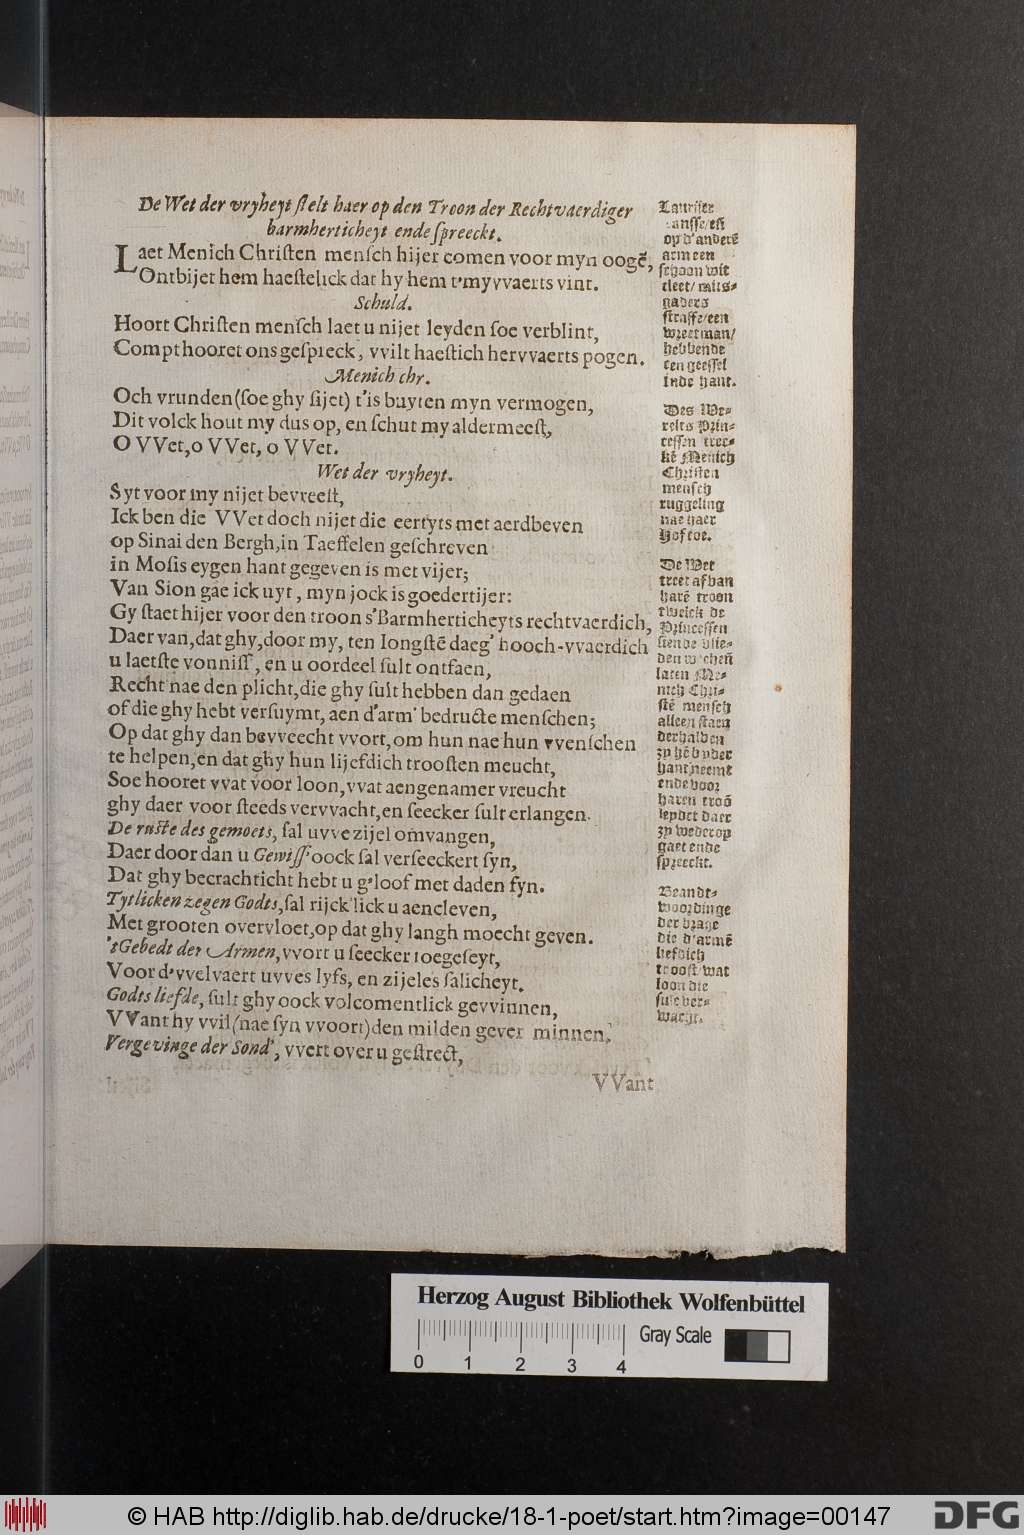 De Wet der vryheyt stelt haer op den Troon der Rechtvaerdiger
barmherticheyt ende spreeckt.
Laet Menich Christen mensch hijer comen voor myn oogẽ,
Ontbijet hem haestelick dat hy hem t'myvvaerts vint.
Schuld.
Hoort Christen mensch laet u nijet leyden soe verblint,
Compt hooret ons gespreck, vvilt haestich hervvaerts pogen.
Menich chr.
Och vrunden (soe ghy sijet) t'is buyten myn vermogen,
Dit volck hout my dus op, en schut my aldermeest,
O VVet, o VVet, o VVet.
Wet der vryheyt.
Syt voor my nijet bevreest,
Ick ben die VVet doch nijet die eertyts met aerdbeven
op Sinai den Bergh, in Taeffelen geschreven
in Mosis eygen hant gegeven is met vijer;
Van Sion gae ick uyt, myn jock is goedertijer:
Gy staet hijer voor den troon s'Barmherticheyts rechtvaerdich,
Daer van, dat ghy, door my, ten Iongstẽ daeg' hooch-vvaerdich
u laetste vonniss, en u oordeel sult ontfaen,
Recht nae den plicht, die ghy sult hebben dan gedaen
of die ghy hebt versuymt, aen d'arm' bedructe menschen;
Op dat ghy dan bevveecht vvort, om hun nae hun vvenschen
te helpen, en dat ghy hun lijefdich troosten meucht,
Soe hooret vvat voor loon, vvat aengenamer vreucht
ghy daer voor steeds vervvacht, en seecker sult erlangen.
De ruste des gemoets, sal uvve zijel omvangen,
Daer door dan u Gewiss' oock sal verseeckert syn,
Dat ghy becrachticht hebt u g'loof met daden fyn.
Tytlicken zegen Godts, sal rijck'lick u aencleven,
Met grooten overvloet, op dat ghy langh moecht geven.
't Gebedt der Armen, vvort u seecker toegeseyt,
Voor d'vvelvaert uvves lyfs, en zijeles salicheyt.
Godts liefde, sult ghy oock volcomentlick gevvinnen,
VVant hy vvil (nae syn vvoort) den milden gever minnen,
Vergevinge der Sond', vvert over u gestrect,
VVant
op d'anderẽ
arm een
schoon wit
cleet/ mits-
gaders
straffe/ een
wreet man/
hebbende
een geessel
inde hant.
Des We-
relts Prin-
cessen trec-
kẽ Menich
Christen
mensch
ruggeling
nae haer
Hof toe.
De Wet
treet af van
harẽ troon
twelck de
Princessen
siende vlie-
den wechen
laten Me-
nich Chri-
stẽ mensch
alleen staen
derhalven
zy hẽ by der
hant neemt
ende voor
haren troõ
leydet daer
zy wederop
gaet ende
spreeckt.
Beandt-
woordinge
der vrage
die d'armẽ
liefdich
troost/ wat
loon die
sulc ver-
wacht.
Herzog August Bibliothek Wolfenbüttel
Gray Scale
0 1 2 3 4
© HAB http://diglib.hab.de/drucke/18-1-poet/start.htm?image=00147
DFG